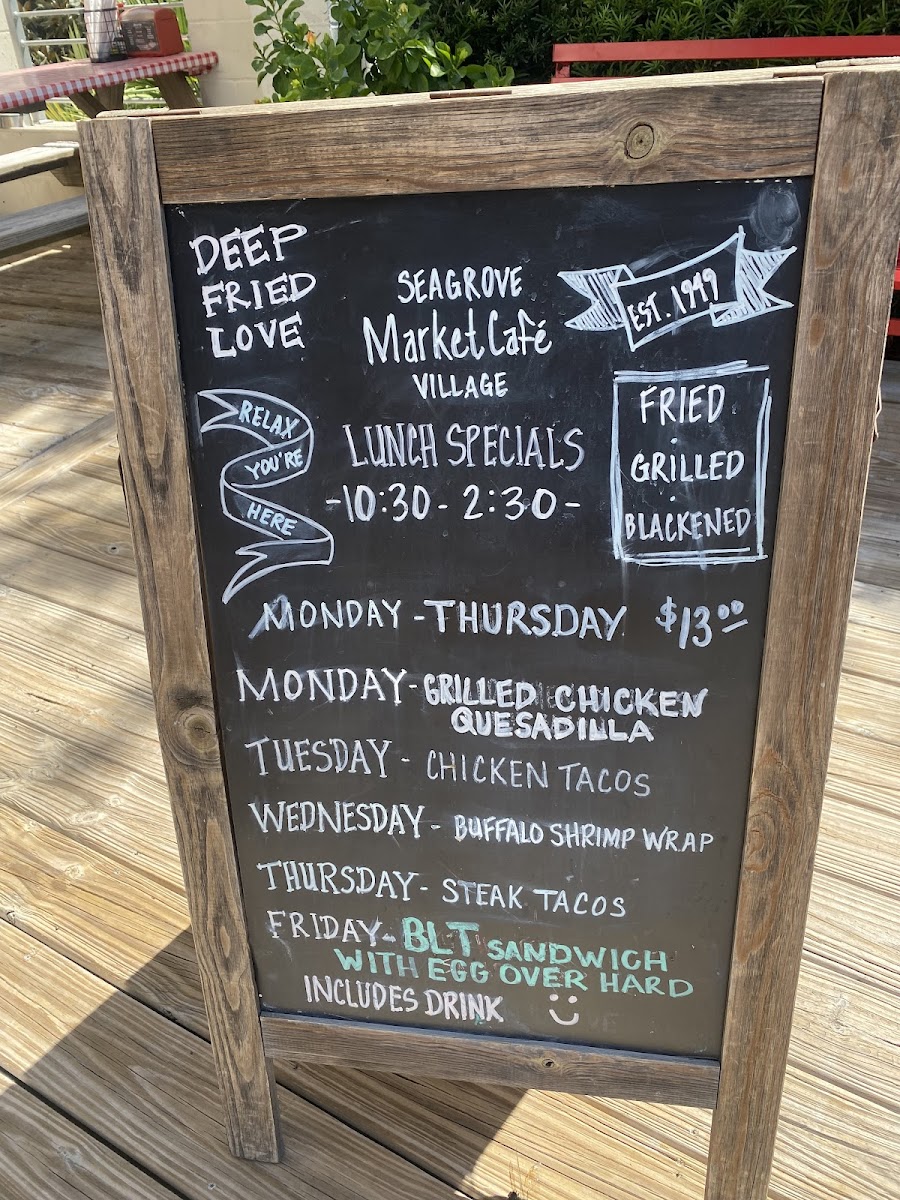 DEEP
FRIED
LOVE
SEAGROVE
Market Café
VILLAGE
EST. 1949
RELAX
YOU'RE
HERE
LUNCH SPECIALS
-10:30 - 2:30-
FRIED
·
GRILLED
·
BLACKENED
MONDAY - THURSDAY $13.00
MONDAY - GRILLED CHICKEN
QUESADILLA
TUESDAY - CHICKEN TACOS
WEDNESDAY - BUFFALO SHRIMP WRAP
THURSDAY - STEAK TACOS
FRIDAY - BLT SANDWICH
WITH EGG OVER HARD
INCLUDES DRINK